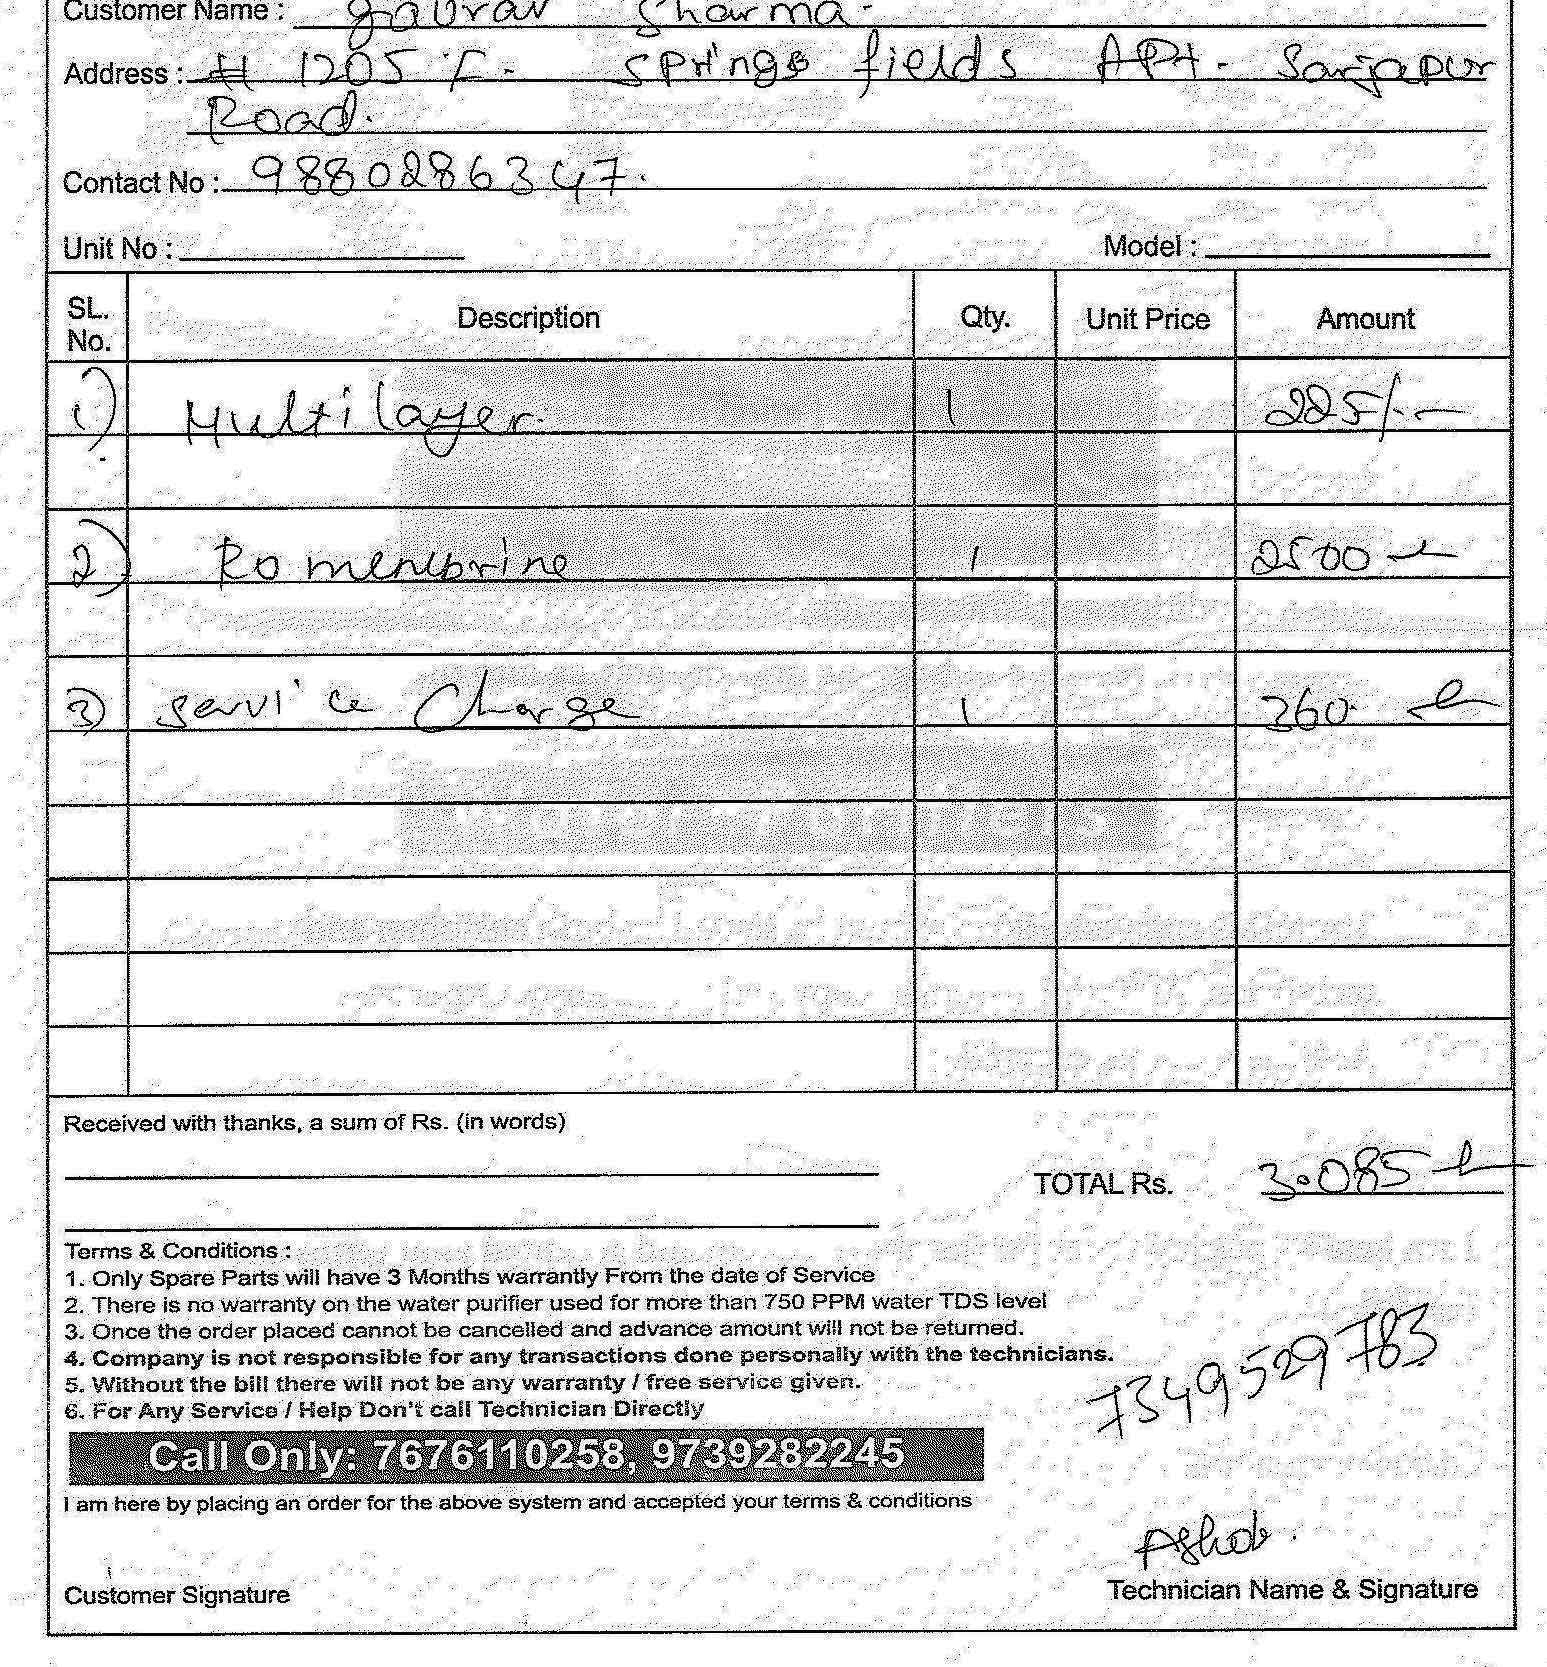 Customer Name : Gaurav Sharma.
Address : # 1205 F. Springs fields APt. Sarjapur
Road.
Contact No : 9880286347.
Unit No :
Model :
SL. No. Description Qty. Unit Price Amount
1) Multilayer. 1 225/.-
2) Ro menebrine 1 2500
3) Service Charge 1 360
Received with thanks, a sum of Rs. (in words)
TOTAL Rs. 3.085
Terms & Conditions :
1. Only Spare Parts will have 3 Months warrantly From the date of Service
2. There is no warranty on the water purifier used for more than 750 PPM water TDS level
3. Once the order placed cannot be cancelled and advance amount will not be returned.
4. Company is not responsible for any transactions done personally with the technicians.
5. Without the bill there will not be any warranty / free service given.
6. For Any Service / Help Don't call Technician Directly
7349529783
Call Only: 7676110258, 9739282245
I am here by placing an order for the above system and accepted your terms & conditions
Ashok.
Customer Signature
Technician Name & Signature